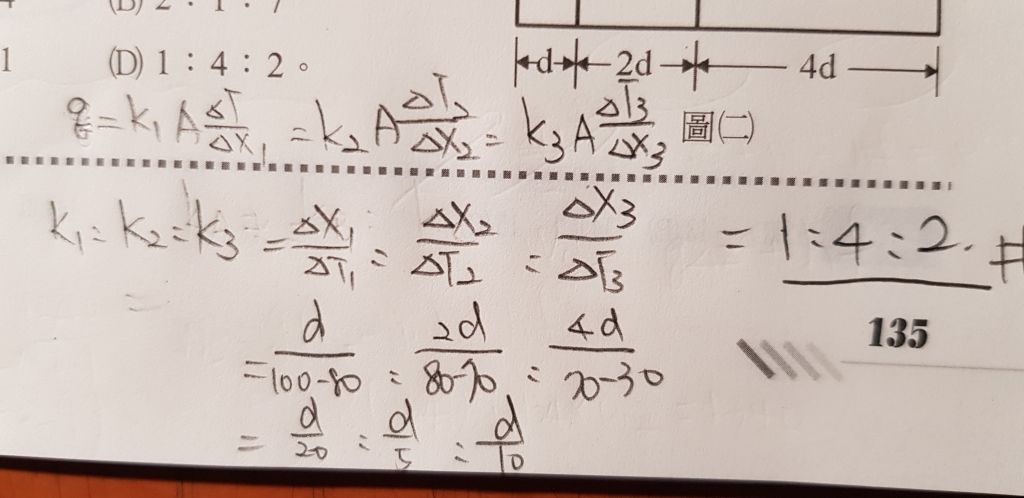 (B) 2 : 1 : 7
1 (D) 1 : 4 : 2 。
d 2d 4d
q = k₁ A ΔT/ΔX₁ = k₂ A ΔT₂/ΔX₂ = k₃ A ΔT₃/ΔX₃ 圖(二)
k₁ : k₂ : k₃ = ΔX₁/ΔT₁ : ΔX₂/ΔT₂ : ΔX₃/ΔT₃ = 1 : 4 : 2. #
= d/100-80 : 2d/80-70 : 4d/70-30
135
= d/20 : d/5 : d/10